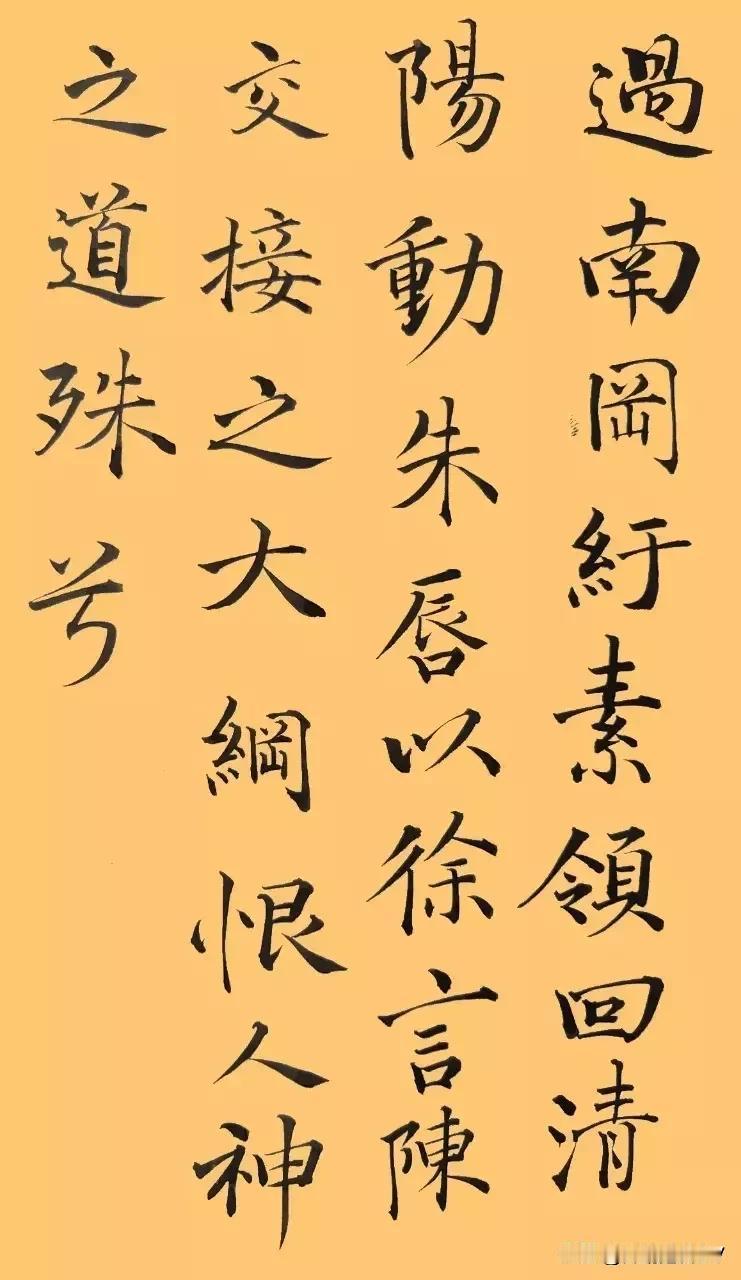 過南岡紆素領回清
陽動朱唇以徐言陳
交接之大綱恨人神
之道殊兮